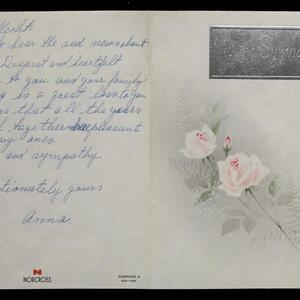 Hecht:
to hear the sad news about
Deepest and heartfelt
to you and your family
is a great loss to you
that all the years
together pleasant
ones.
and sympathy
tionately yours
Anna
NORCROSS
NEW YORK